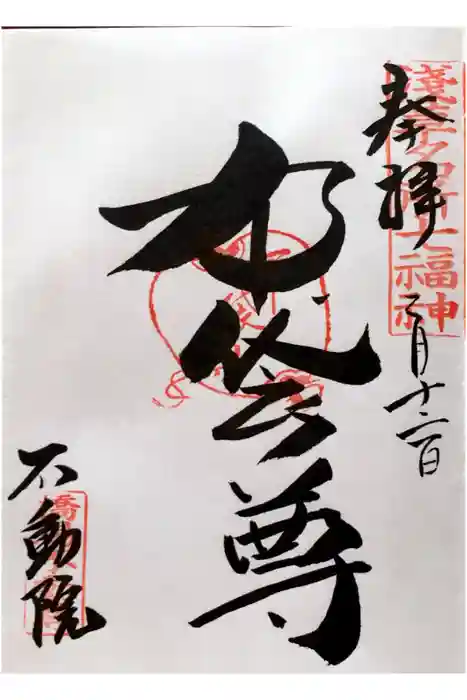 奉拝
淺草名所七福神
月十二日
布袋尊
不動院